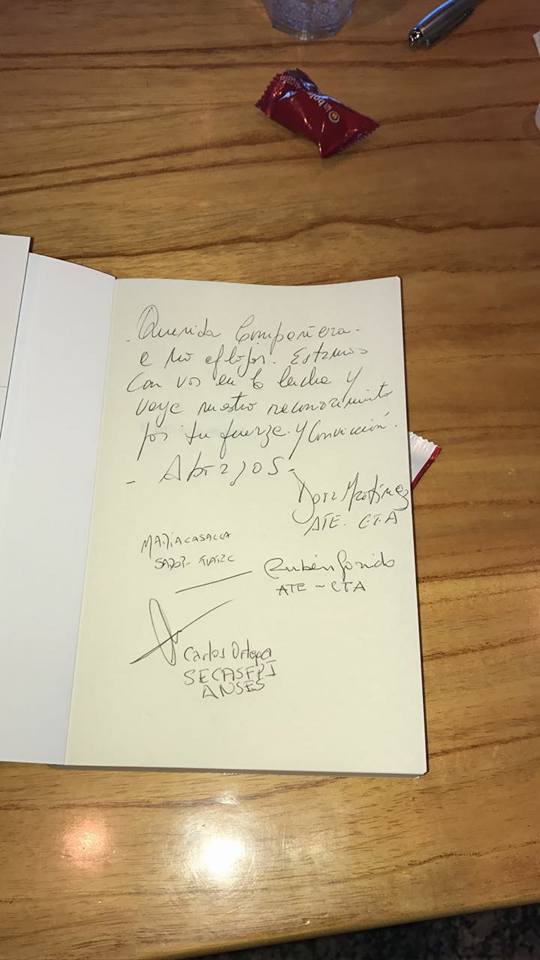 Querida Compañera.
a no aflojar. Estamos
Con vos en la lucha y
vaya nuestro reconocimiento
por tu fuerza. y Convicción.
- Abrazos -
Dora Martínez
ATE. CTA
MARIA CASALLA
Rubén
ATE - CTA
Carlos Ortega
SECASFPI
ANSES